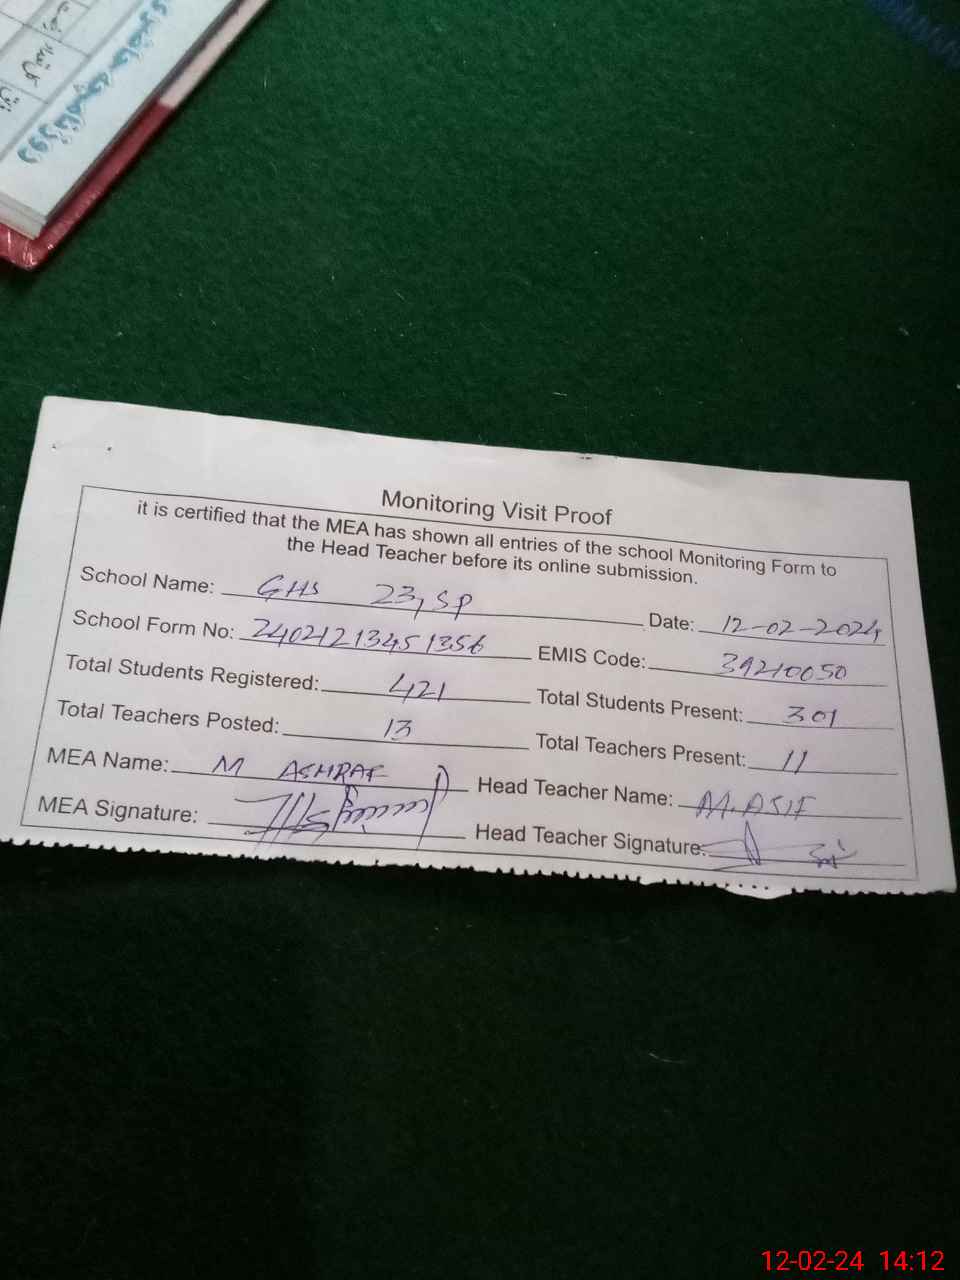 روزنامچہ
Monitoring Visit Proof
it is certified that the MEA has shown all entries of the school Monitoring Form to
the Head Teacher before its online submission.
School Name: GHS 23, SP Date: 12-02-2024
School Form No: 24021213451356 EMIS Code: 39210050
Total Students Registered: 421 Total Students Present: 301
Total Teachers Posted: 13 Total Teachers Present: 11
MEA Name: M ASHRAF Head Teacher Name: M. ASIF
MEA Signature: Head Teacher Signature:
12-02-24 14:12